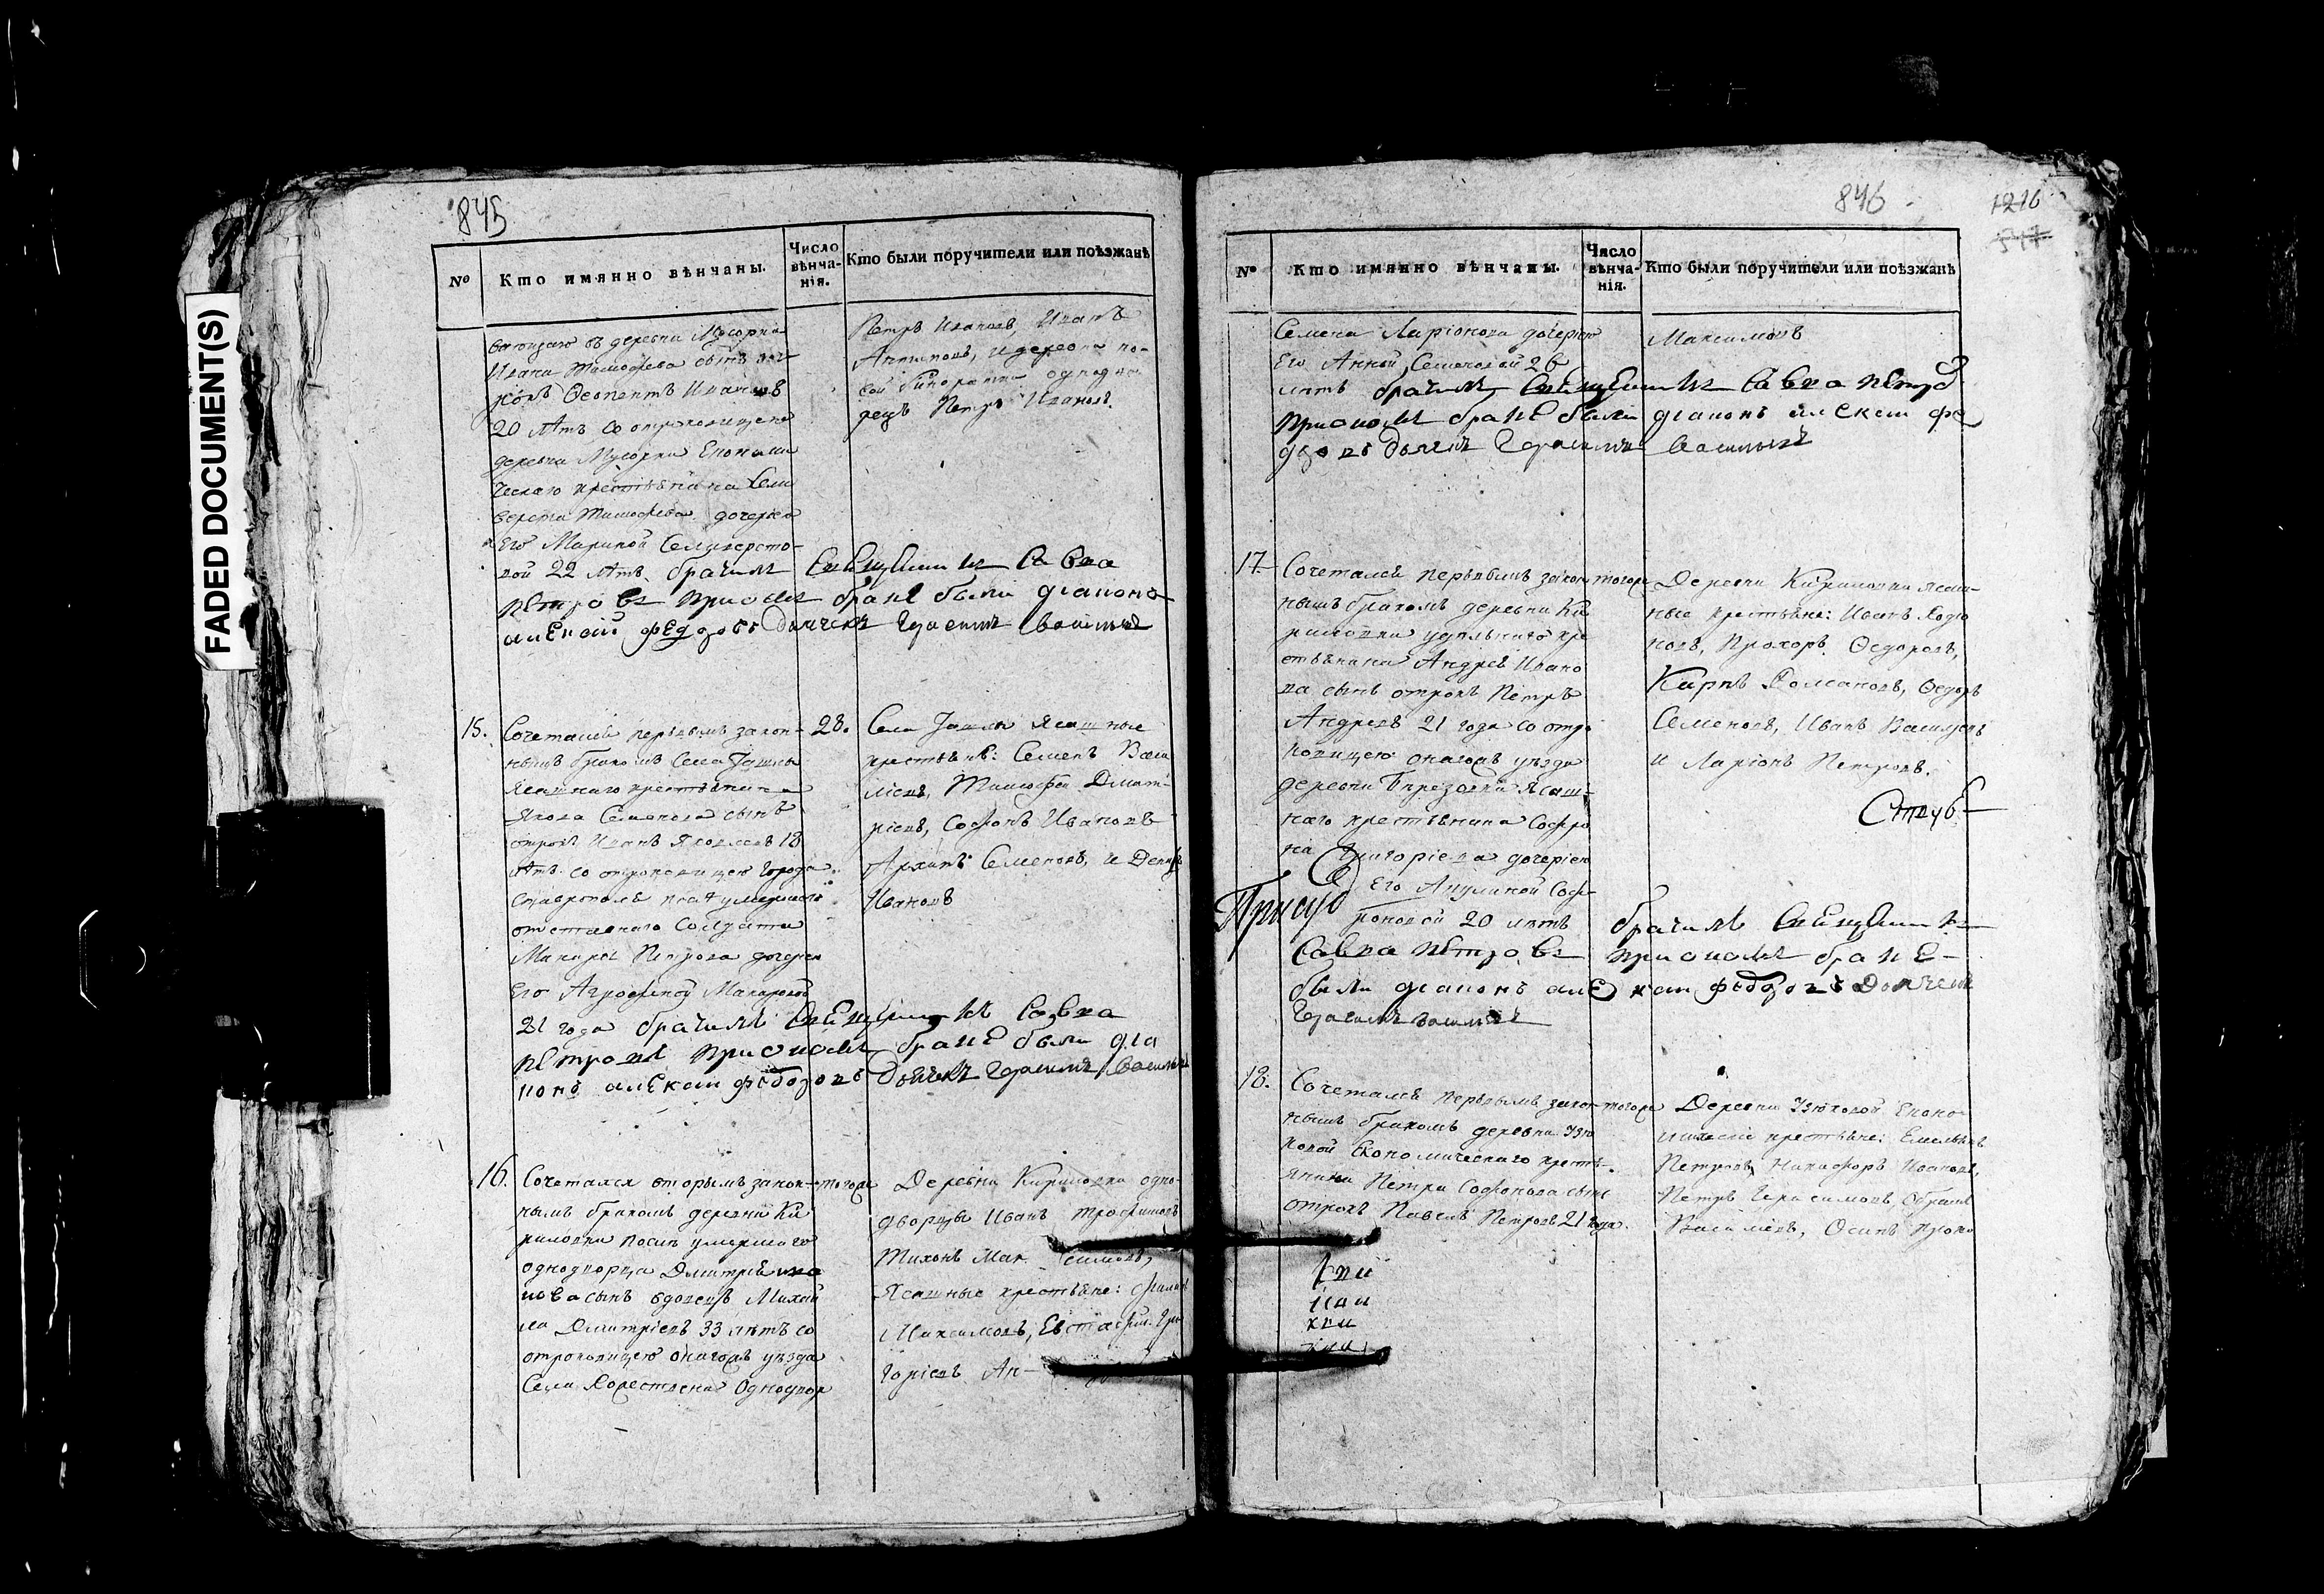 FADED DOCUMENT(S)
845
№
Кто имянно вѣнчаны.
Число
вѣнча-
нія.
Кто были поручители или поѣзжанѣ
Ивана Тимофеева сынъ
20 лѣтъ со отроковицею
деревни Мусорки Економи
ческаго крестьянина Сели
верста Тимофеева дочерью
Его Мариной Селиверсто-
вой 22 лѣтъ. брачилъ Священникъ Савва
Петровъ при ономъ браке были диаконъ
алексей федоровъ дьячекъ Герасимъ васильевъ
Петръ Ивановъ, Иванъ
Антиповъ, и деревни но-
вой Бинаратки однодво
рецъ Петръ Ивановъ.
15.
Сочетался первымъ закон-
нымъ бракомъ Села Ташлы
Ясашнаго крестьянина
Якова Семенова сынъ
отрокъ Иванъ Яковлевъ 18
лѣтъ со отроковицею города
Ставрополя умершаго
отставнаго Солдата
Макара Петрова дочерью
Его Агрофеной Макаровой
21 года брачилъ Священникъ Савва
Петровъ при ономъ браке были диа
конъ алексей федоровъ Дьячекъ Герасимъ Васильевъ
28.
Села Ташлы Ясашные
крестьяне: Семенъ Васи
лієвъ, Тимофей Дмит-
ріевъ, Софонъ Ивановъ
Архипъ Семеновъ, и Денисъ
Ивановъ
16.
Сочетался вторымъ закон-
нымъ бракомъ деревни Ки
риловки послѣ умершаго
однодворца Дмитрія Ива
нова сынъ вдовецъ Михай
ла Дмитріевъ 33 лѣтъ со
отроковицею онагожъ уѣзда
Села Хорестовки Однодвор
тогожъ
Деревни Кириловки одно-
дворцы Иванъ Трофимовъ
Тихонъ Максимовъ,
Ясашные крестьяне: Филипъ
Максимовъ, Евстафій Гри
горіевъ Ан-
846
1216
№
Кто имянно вѣнчаны.
Число
вѣнча-
нія.
Кто были поручители или поѣзжанѣ
Семена Ларіонова дочерью
Его Анной Семеновой 26
лѣтъ брачилъ Священникъ Савва Петровъ
при ономъ браке были диаконъ алексей фе
доровъ дьячекъ Герасимъ Васильевъ
Максимовъ
17.
Сочетался первымъ закон
нымъ бракомъ деревни Ки
риловки удѣльнаго кре
стьянина Андрея Ивано
ва сынъ отрокъ Петръ
Андреевъ 21 года со отро
ковицею онагожъ уѣзда
деревни Березовки Ясаш-
наго крестьянина Софро
на Григоріева дочерью
Его Акулиной Соф-
роновой 20 лѣтъ брачилъ Священникъ
Савва Петровъ при ономъ браке
были диаконъ алексей федоровъ Дьячекъ
Герасимъ васильевъ
тогожъ
Деревни Кириловки Ясаш-
ные крестьяне: Иванъ Родіо
новъ, Прохоръ Федоровъ,
Карпъ Романовъ, Федоръ
Семеновъ, Иванъ Васильевъ
и Ларіонъ Петровъ.
18.
Сочетался первымъ закон-
нымъ бракомъ деревни Узю
ковой Економическаго кресть-
янина Петра Софонова сынъ
отрокъ Павелъ Петровъ 21 года.
тогожъ
Деревни Узюковой Еконо-
мическіе крестьяне: Емельянъ
Петровъ, Никифоръ Ивановъ,
Петръ Герасимовъ,
Васильевъ, Осипъ Проко